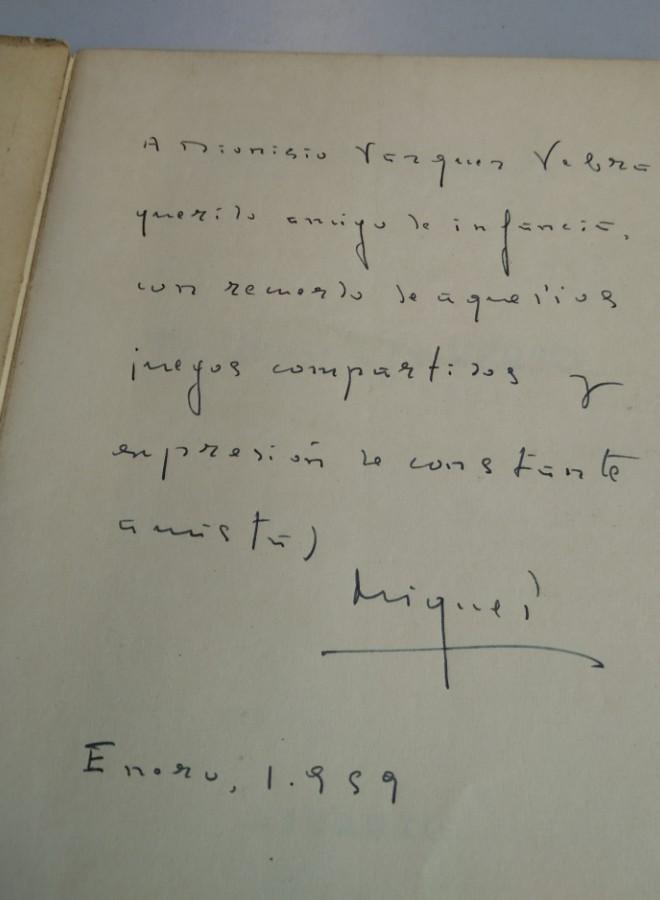 A Dionisio Vázquez
querido amigo de infancia,
con recuerdo de aquellos
juegos compartidos y
expresión de constante
amistad
Miguel
Enero, 1.959